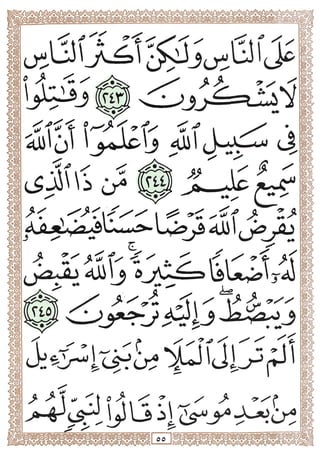 عَلَى ٱلنَّاسِ وَلَٰكِنَّ أَكۡثَرَ ٱلنَّاسِ
لَا يَشۡكُرُونَ ٢٤٣ وَقَٰتِلُواْ
فِي سَبِيلِ ٱللَّهِ وَٱعۡلَمُوٓاْ أَنَّ ٱللَّهَ
سَمِيعٌ عَلِيمٞ ٢٤٤ مَّن ذَا ٱلَّذِي
يُقۡرِضُ ٱللَّهَ قَرۡضًا حَسَنٗا فَيُضَٰعِفَهُۥ
لَهُۥٓ أَضۡعَافٗا كَثِيرَةٗۚ وَٱللَّهُ يَقۡبِضُ
وَيَبۡصُۜطُ وَإِلَيۡهِ تُرۡجَعُونَ ٢٤٥
أَلَمۡ تَرَ إِلَى ٱلۡمَلَإِ مِنۢ بَنِيٓ إِسۡرَٰٓءِيلَ
مِنۢ بَعۡدِ مُوسَىٰٓ إِذۡ قَالُواْ لِنَبِيّٖ لَّهُمُ
٥٥